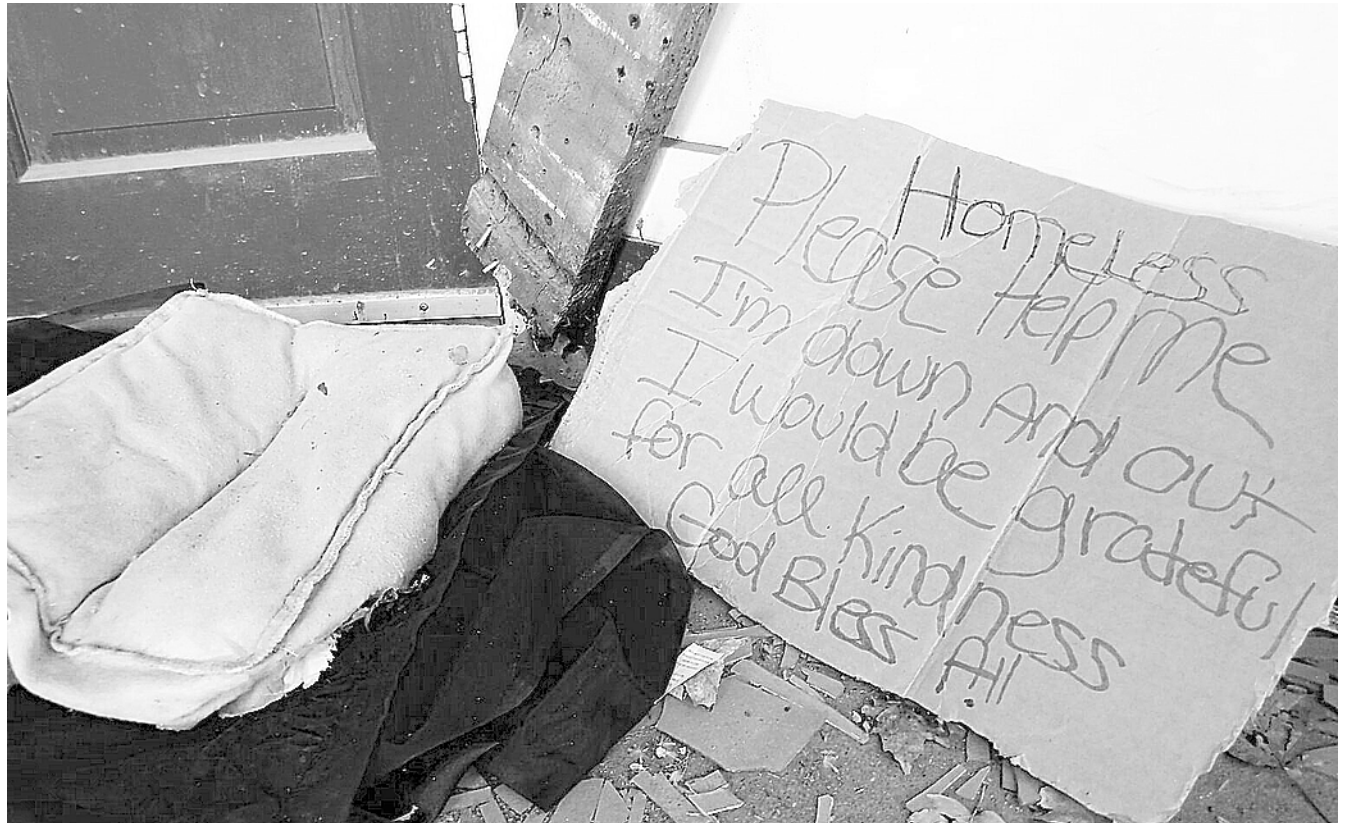 HomeLess
Please Help Me
I'm down And out
I would be grateful
for all Kindness
God Bless All